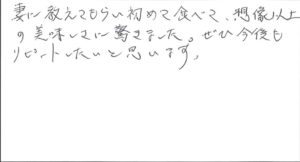 妻に教えてもらい初めて食べて、想像以上
の美味しさに驚きました。ぜひ今後も
リピートしたいと思います。